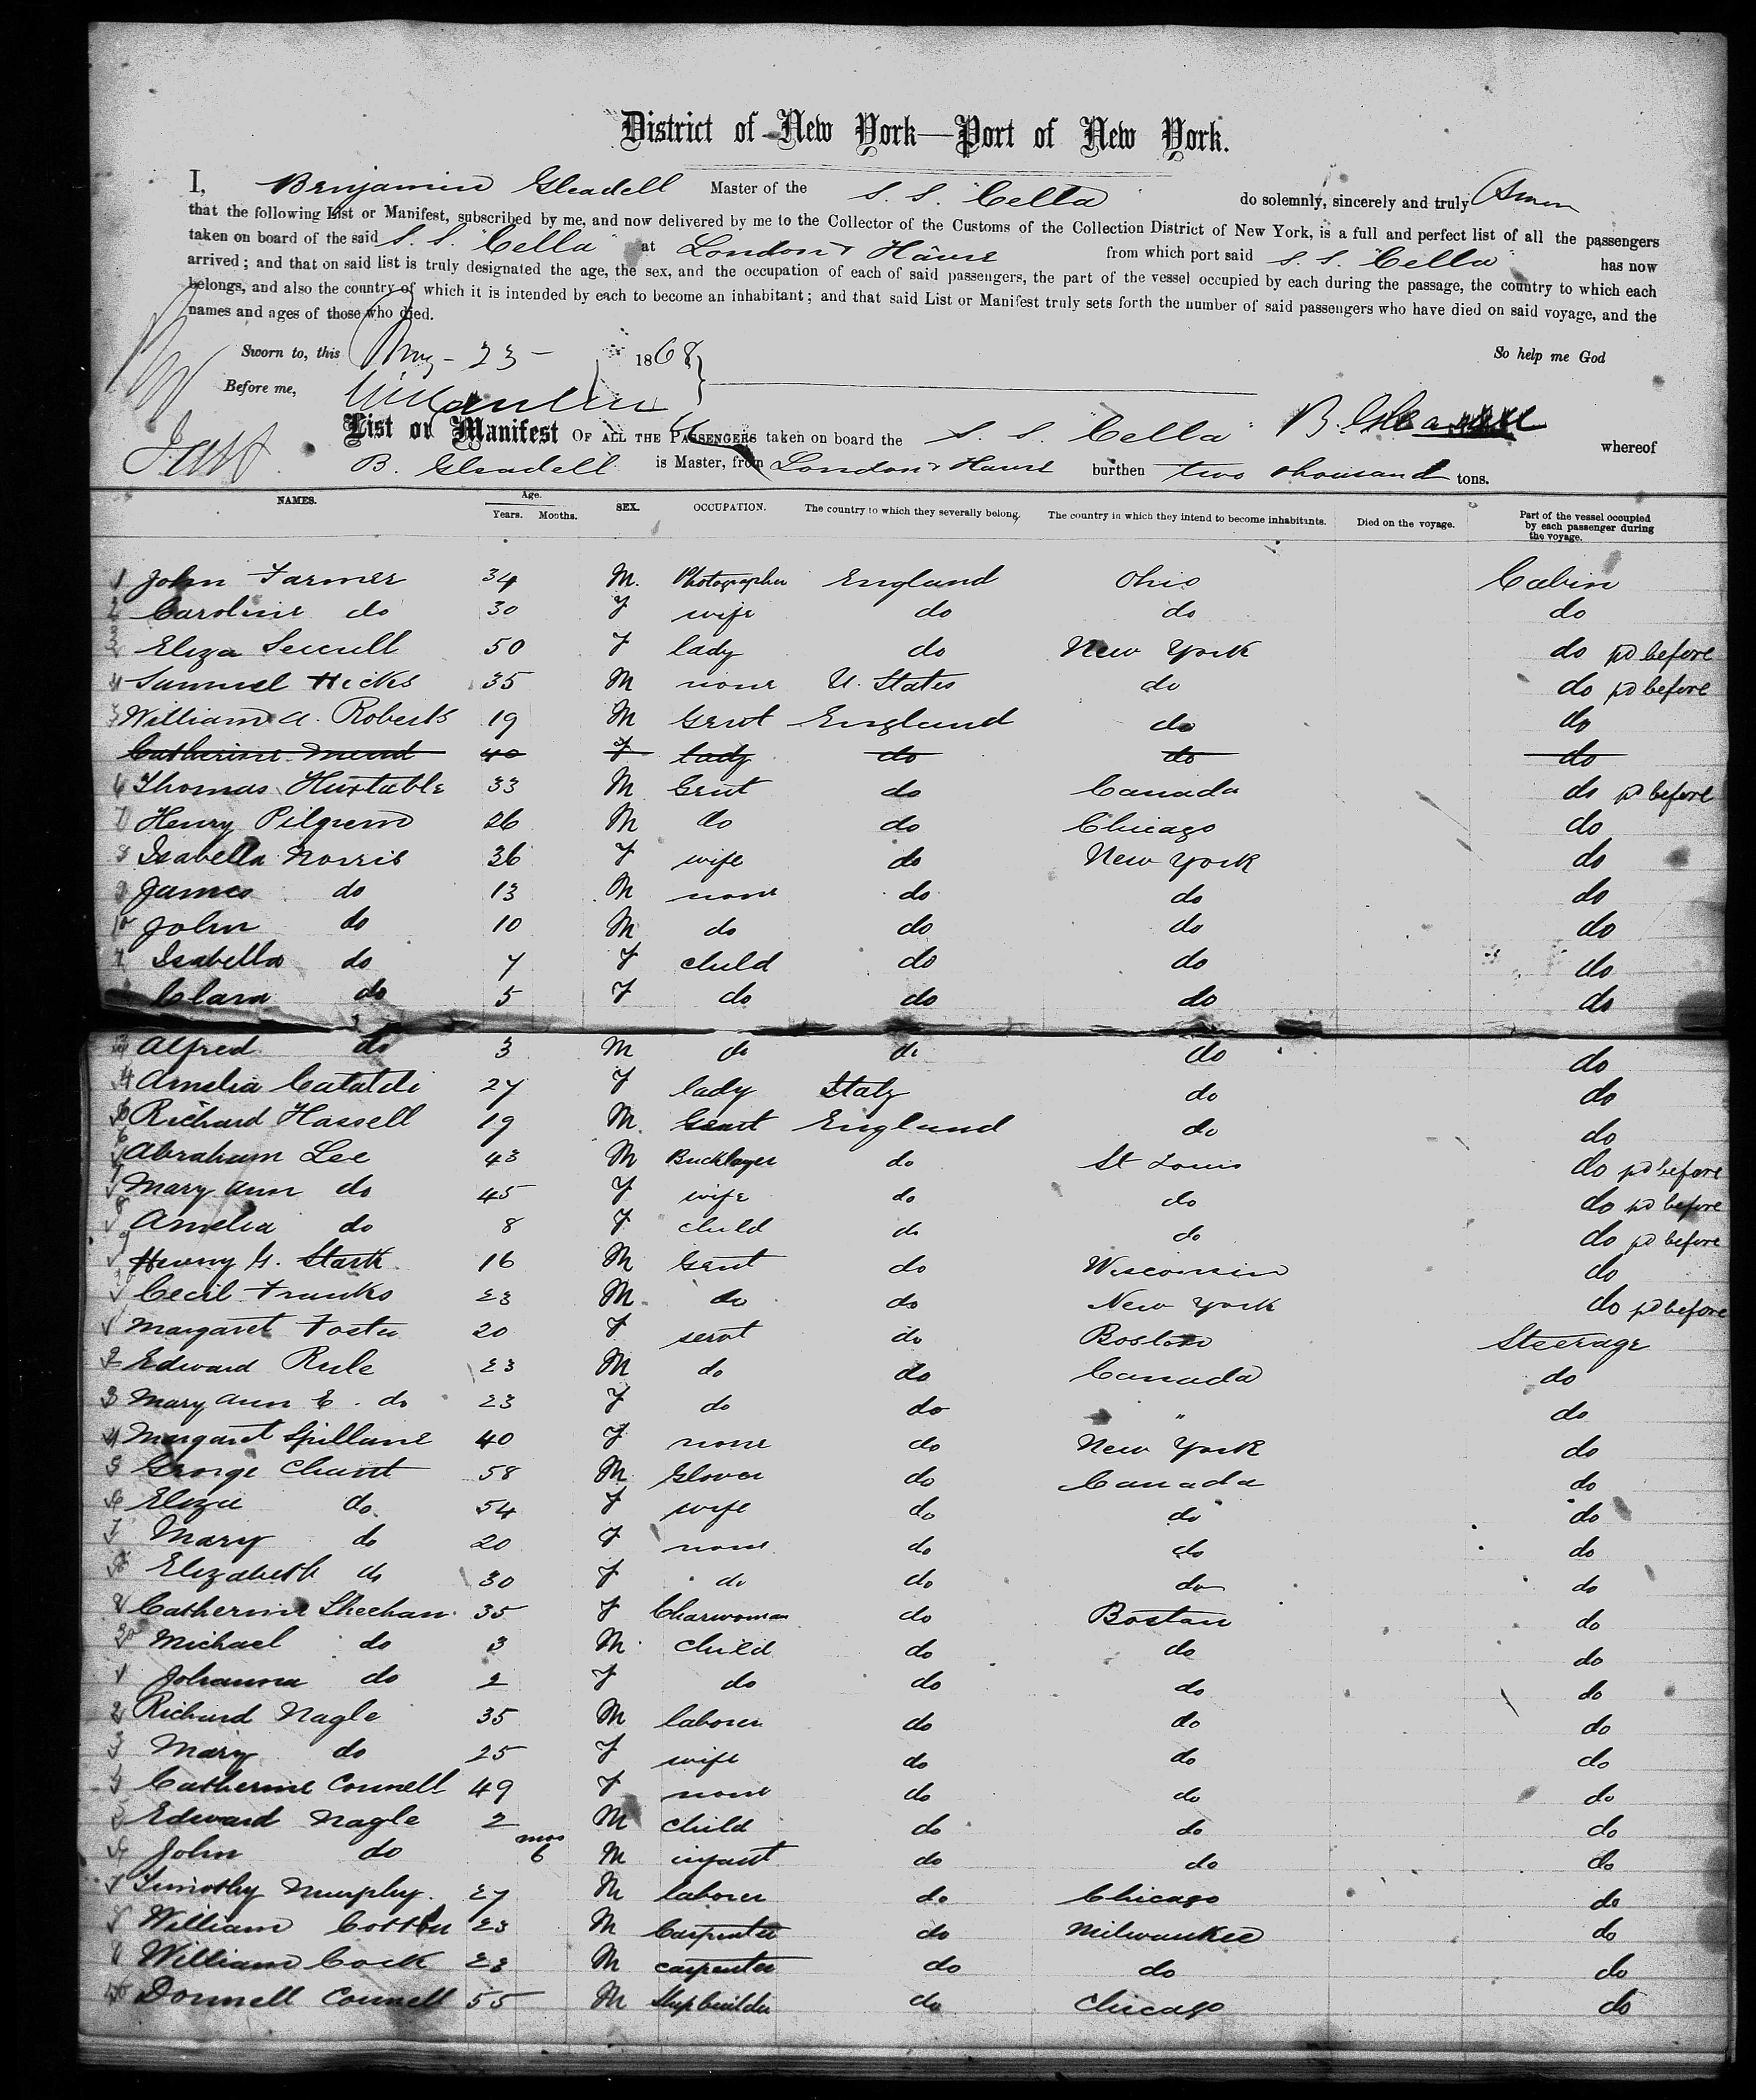 District of New York—Port of New York.
I, Benjamin Gleadell Master of the S. S. "Cella" do solemnly, sincerely and truly Swear
that the following List or Manifest, subscribed by me, and now delivered by me to the Collector of the Customs of the Collection District of New York, is a full and perfect list of all the passengers
taken on board of the said S. S. "Cella" at London & Havre from which port said S. S. "Cella" has now
arrived; and that on said list is truly designated the age, the sex, and the occupation of each of said passengers, the part of the vessel occupied by each during the passage, the country to which each
belongs, and also the country of which it is intended by each to become an inhabitant; and that said List or Manifest truly sets forth the number of said passengers who have died on said voyage, and the
names and ages of those who died.
So help me God
Sworn to, this May - 23 - 1868
Before me,
List or Manifest OF ALL THE PASSENGERS taken on board the S. S. "Cella" whereof
B. Gleadell is Master, from London & Havre burthen two thousand tons.
NAMES. Age. Years. Months. SEX. OCCUPATION. The country to which they severally belong. The country in which they intend to become inhabitants. Died on the voyage. Part of the vessel occupied by each passenger during the voyage.
1 John Farmer 34 M. Photographer England Ohio Cabin
2 Caroline do 30 F wife do do do
3 Eliza 50 F lady do New York do pd before
4 Samuel Hicks 35 M none U. States do do pd before
5 William A. Roberts 19 M Gent England do do
Catherine 40 F lady do do do
6 Thomas Huxtable 33 M Gent do Canada do pd before
7 Henry Pilgrem 26 M do do Chicago do
8 Isabella Norris 36 F wife do New York do
9 James do 13 M none do do do
10 John do 10 M do do do do
1 Isabella do 7 F child do do do
Clara do 5 F do do do do
3 Alfred do 3 M do do do do
4 Amelia Cataldi 27 F lady Italy do do
5 Richard Hassell 19 M. Gent England do do
6 Abraham Lee 43 M Bricklayer do St Louis do pd before
7 Mary Ann do 45 F wife do do do pd before
8 Amelia do 8 F child do do do pd before
9 Henry G. Stark 16 M Gent do Wisconsin do
20 Cecil Franks 23 M. do do New York do pd before
1 Margaret Foster 20 F servt do Boston Steerage
2 Edward Rule 23 M do do Canada do
3 Mary Ann E. do 23 F do do " do
4 Margaret Spillane 40 F none do New York do
5 George Chant 58 M Glover do Canada do
6 Eliza do 54 F wife do do do
7 Mary do 20 F none do do do
8 Elizabeth do 30 F do do do do
9 Catherine Sheehan 35 F Charwoman do Boston do
30 Michael do 3 M child do do do
1 Johanna do 2 F do do do do
2 Richard Nagle 35 M laborer do do do
3 Mary do 25 F wife do do do
4 Catherine Connell 49 F none do do do
5 Edward Nagle 2 M child do do do
6 John do mos 6 M infant do do do
7 Timothy Murphy 27 M laborer do Chicago do
8 William Cotton 23 M Carpenter do Milwaukee do
9 William Cock 23 M carpenter do do do
40 Donnell Connell 55 M Shipbuilder do Chicago do